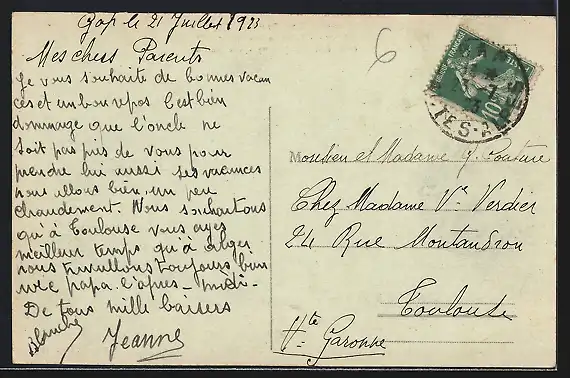 Gap le 21 Juillet 1923
Mes chers Parents
Je vous souhaite de bonnes vacan
ces et un bon repos C'est bien
dommage que l'oncle ne
soit pas près de vous pour
prendre lui aussi ses vacances
nous allons bien, un peu
chaudement. Nous souhaitons
qu'à Toulouse vous ayez
meilleur temps qu'à
nous travaillons toujours bien
avec papa l'après-midi-
De tous mille baisers
Blanche
Jeanne
6
Monsieur et Madame
Chez Madame Ve Verdier
24 Rue Montaudron
Toulouse
Hte Garonne
10
TES-AL